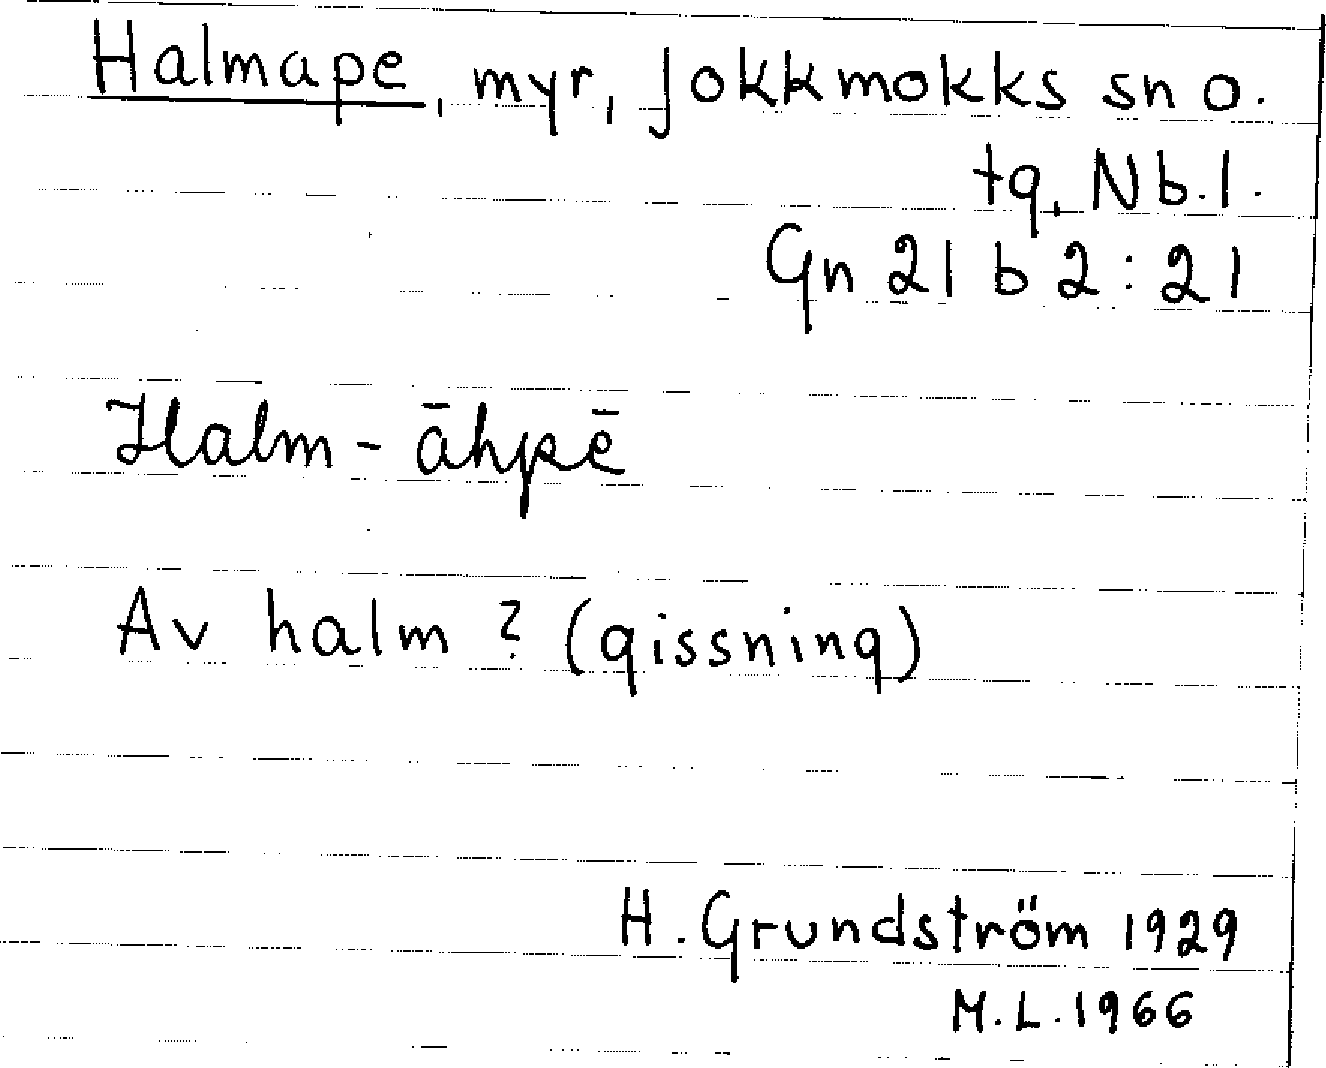 Halmape, myr, Jokkmokks sn o.
tg, Nb.l.
Gn 21 b 2:21
Halm-āhpē
Av halm? (gissning)
H. Grundström 1929
M.L. 1966